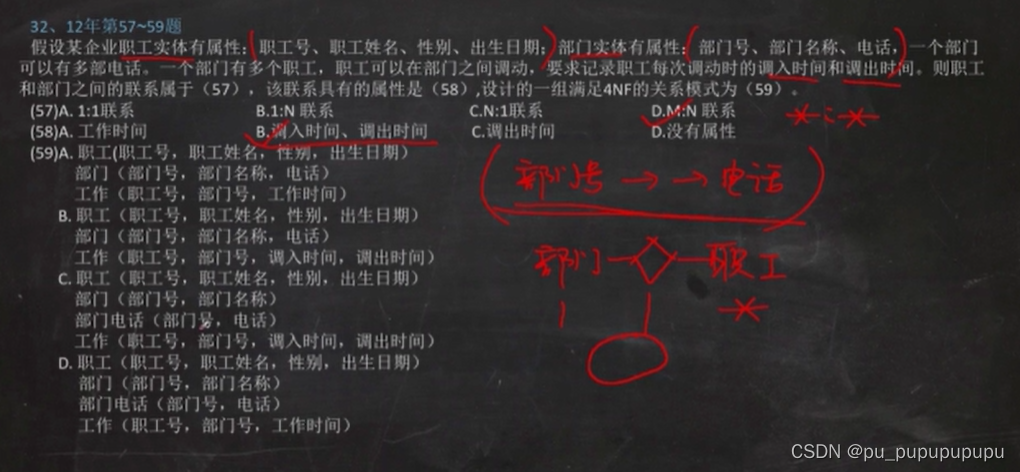 32、12年第57~59题
假设某企业职工实体有属性：职工号、职工姓名、性别、出生日期；部门实体有属性：部门号、部门名称、电话，一个部门
可以有多部电话。一个部门有多个职工，职工可以在部门之间调动，要求记录职工每次调动时的调入时间和调出时间。则职工
和部门之间的联系属于（57），该联系具有的属性是（58）,设计的一组满足4NF的关系模式为（59）。
(57)A. 1:1联系 B.1:N 联系 C.N:1联系 D.M:N 联系
*:*
(58)A. 工作时间 B.调入时间、调出时间 C.调出时间 D.没有属性
(59)A. 职工(职工号，职工姓名，性别，出生日期）
部门（部门号，部门名称，电话）
工作（职工号，部门号，工作时间）
B. 职工（职工号，职工姓名，性别，出生日期）
部门（部门号，部门名称，电话）
工作（职工号，部门号，调入时间，调出时间）
C. 职工（职工号，职工姓名，性别，出生日期）
部门（部门号，部门名称）
部门电话（部门号，电话）
工作（职工号，部门号，调入时间，调出时间）
D. 职工（职工号，职工姓名，性别，出生日期）
部门（部门号，部门名称）
部门电话（部门号，电话）
工作（职工号，部门号，工作时间）
(部门号 →→ 电话)
部门 职工
1 *
CSDN @pu_pupupupupu